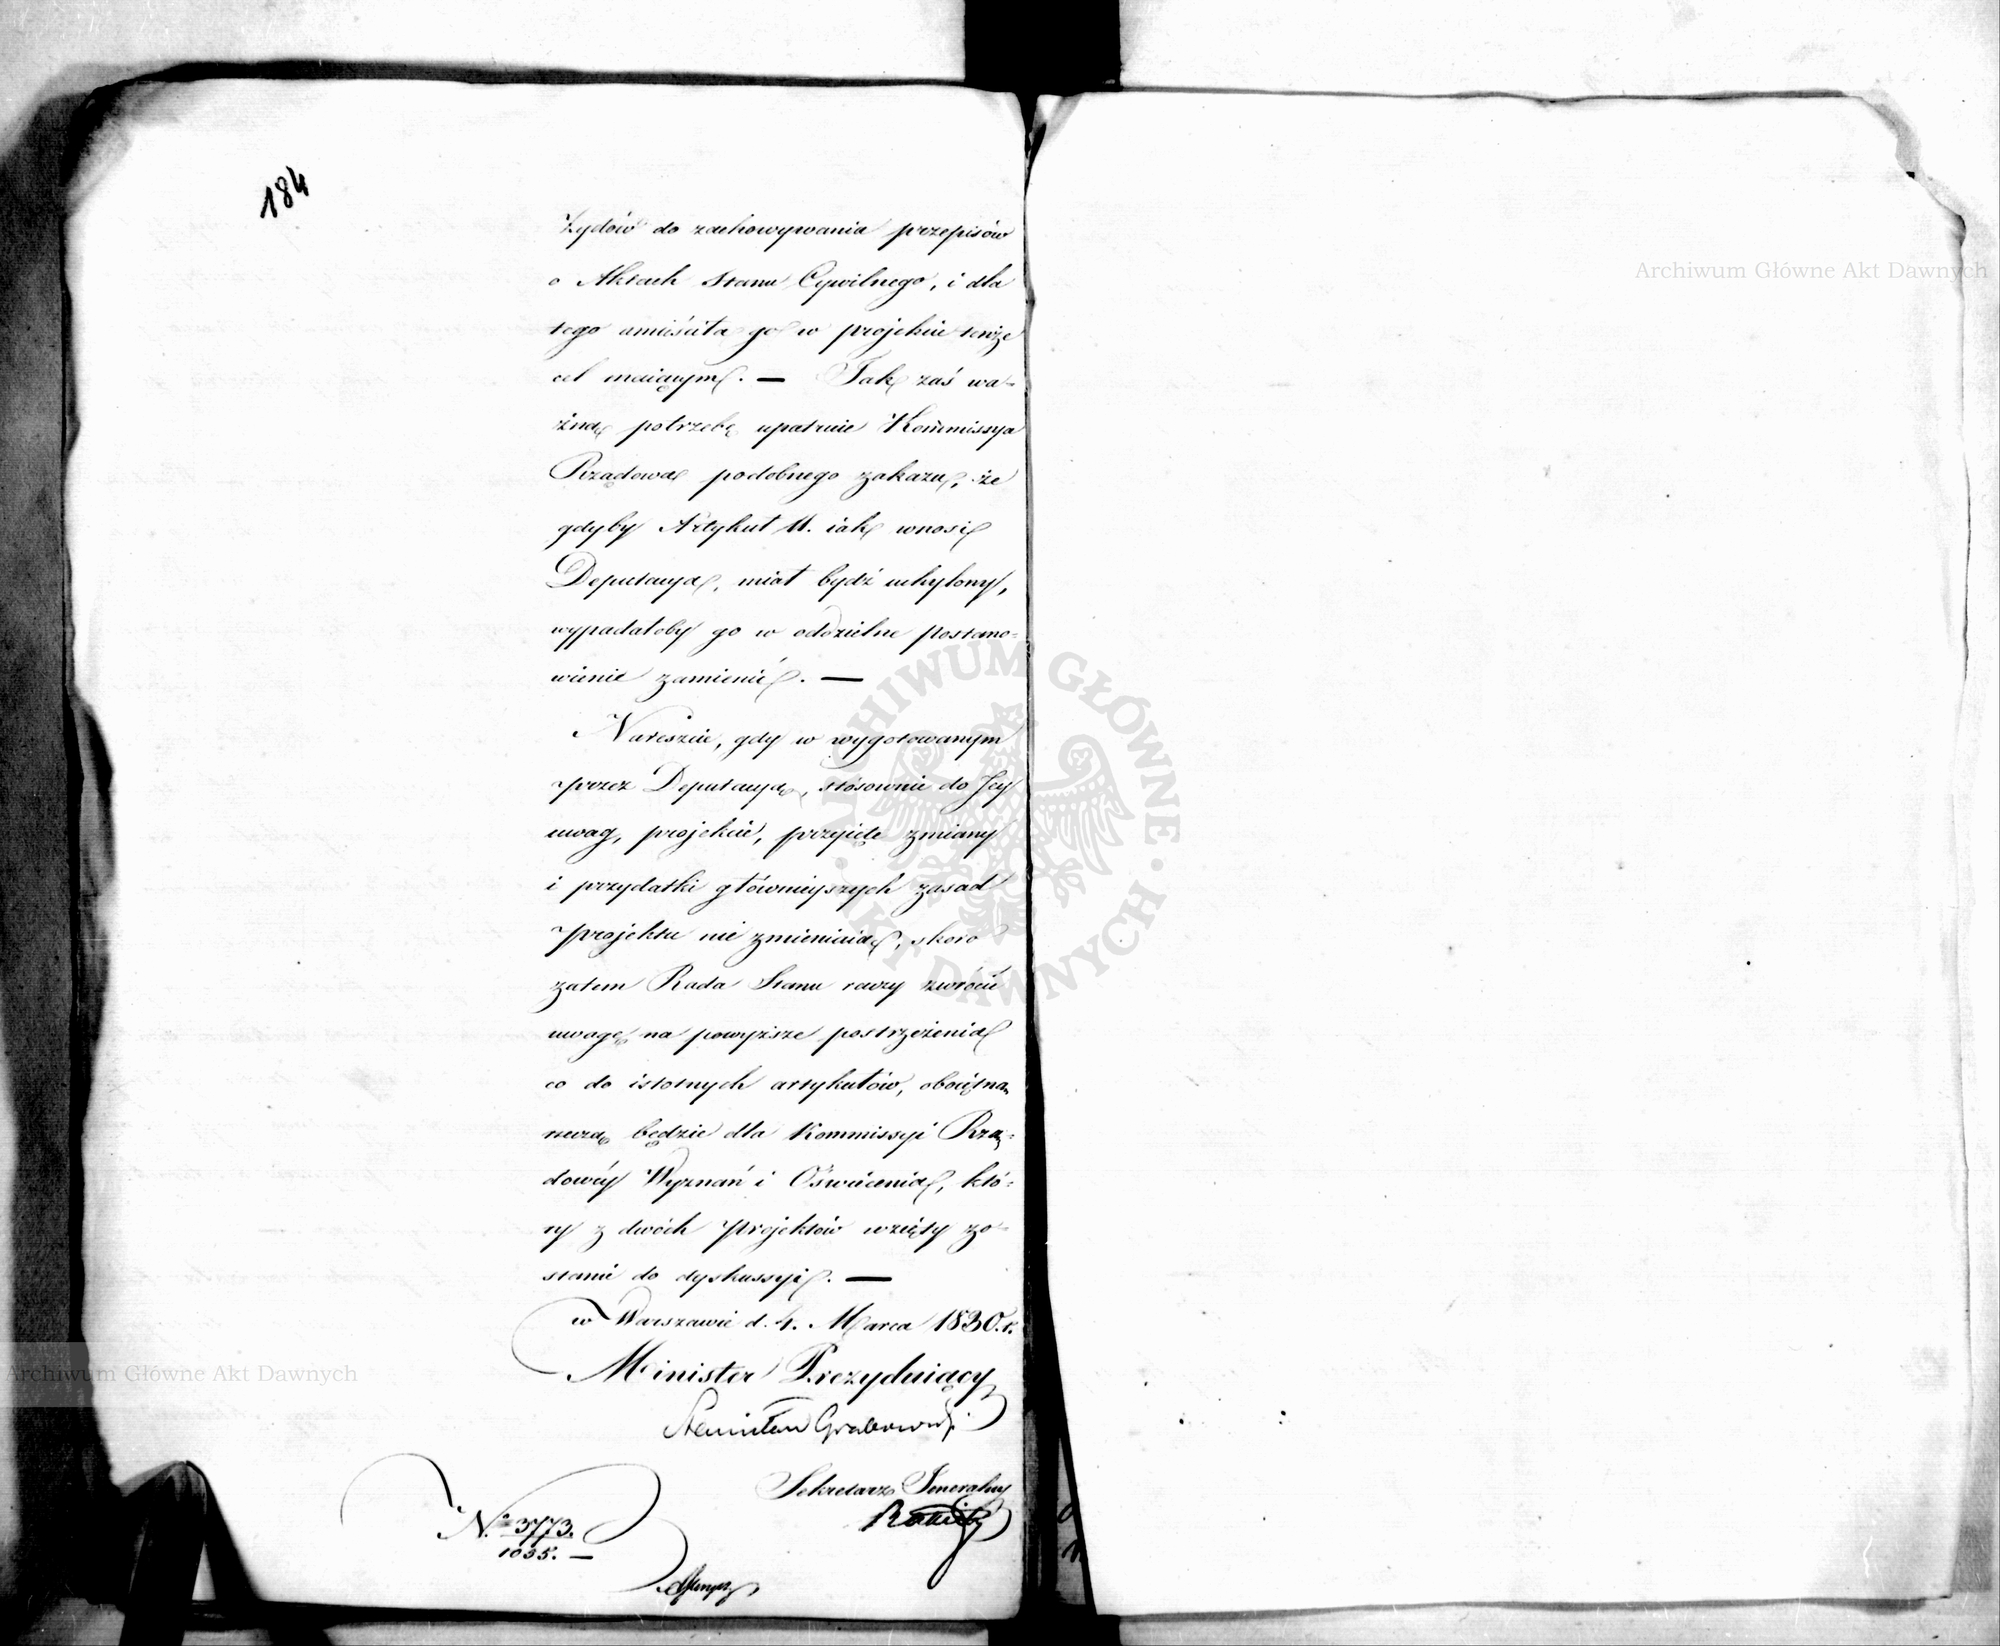 184
Żydów do zachowywania przepisów
o Aktach Stanu Cywilnego, i dla
tego umieściła go w projekcie tenże
cel maiącym. — Tak zaś wa-
żną potrzebę upatruie Kommissya
Rządowa podobnego zakazu, że
gdyby Artykuł 11. iak wnosi
Deputacya, miał bydź uchylony,
wypadałoby go w oddzielne postano-
wienie zamienić. —
Nareszcie, gdy w wygotowanym
przez Deputacyą, stósownie do Jey
uwag, projekcie, przyięte zmiany
i przydatki głównieyszych zasad
projektu nie zmieniaią, skoro
zatem Rada Stanu raczy zwrócić
uwagę na powyższe postrzeżenia
co do istotnych artykułów, oboiętną
rzeczą będzie dla Kommissyi Rzą-
dowéy Wyznań i Oświecenia, któ-
ry z dwóch projektów wzięty zo-
stanie do dyskussyi. —
w Warszawie d. 4. Marca 1830. r.
Minister Prezyduiący
Stanisław Grabowski
Sekretarz Jeneralny
No 3773.
1035. —
Archiwum Główne Akt Dawnych
Archiwum Główne Akt Dawnych
ARCHIWUM GŁÓWNE AKT DAWNYCH